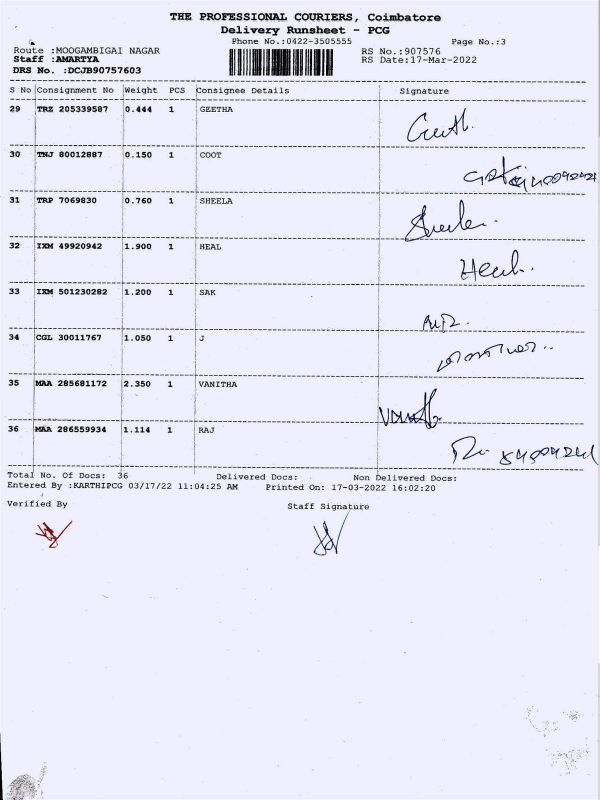 THE PROFESSIONAL COURIERS, Coimbatore
Delivery Runsheet - PCG
Phone No.:0422-3505555 Page No.:3
Route :MOOGAMBIGAI NAGAR RS No.:907576
Staff :AMARTYA RS Date:17-Mar-2022
DRS No. :DCJB90757603
S No Consignment No Weight PCS Consignee Details Signature
29 TRZ 205339587 0.444 1 GEETHA
30 TNJ 80012887 0.150 1 COOT
31 TRP 7069830 0.760 1 SHEELA
32 IXM 49920942 1.900 1 HEAL
33 IXM 501230282 1.200 1 SAK
34 CGL 30011767 1.050 1 J
35 MAA 285681172 2.350 1 VANITHA
36 MAA 286559934 1.114 1 RAJ
Total No. Of Docs: 36 Delivered Docs: Non Delivered Docs:
Entered By :KARTHIPCG 03/17/22 11:04:25 AM Printed On: 17-03-2022 16:02:20
Verified By Staff Signature